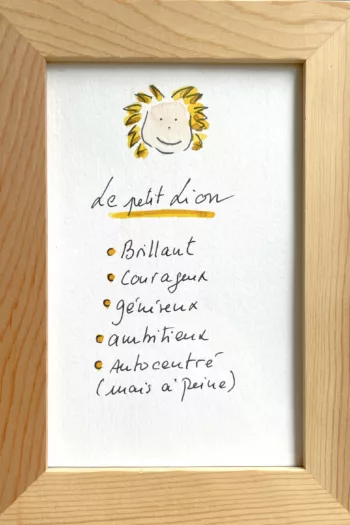 Le petit Lion
• Brillant
• Courageux
• généreux
• ambitieux
• Autocentré
(mais à peine)